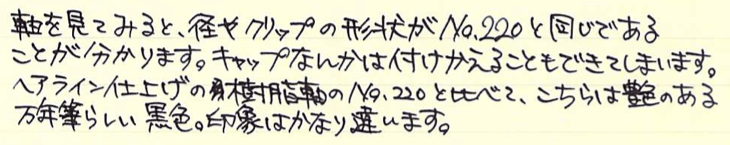 軸を見てみると、径やクリップの形状がNo.220と同じである
ことが分かります。キャップなんかは付けかえることもできてしまいます。
ヘアライン仕上げの樹脂軸のNo.220と比べて、こちらは艶のある
万年筆らしい黒色。印象はかなり違います。